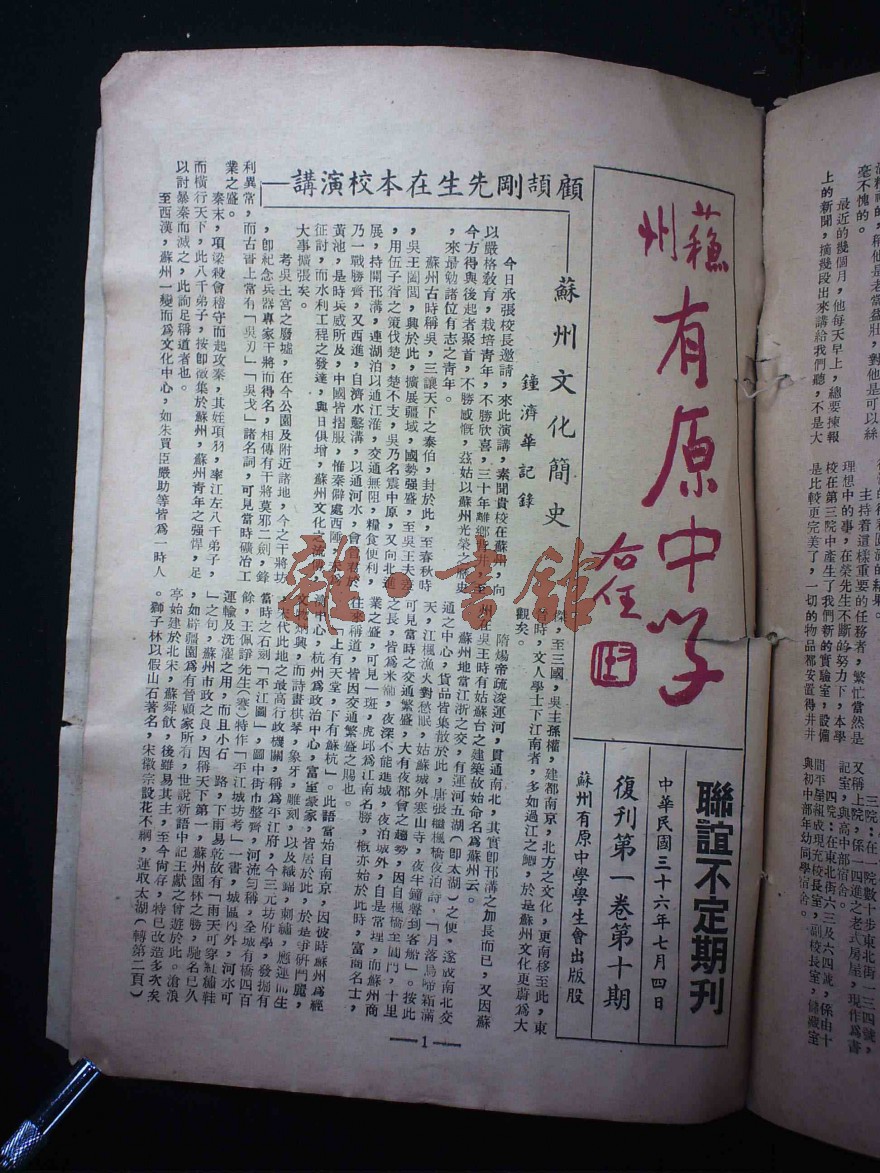 蘇州
有原中学
右任
聯誼不定期刊
中華民國三十六年七月四日
復刊第一卷第十期
蘇州有原中學學生會出版股
顧頡剛先生在本校演講
蘇州文化簡史
鍾濟華記錄
今日承張校長邀請,來此演講,素聞貴校在蘇州,向
以嚴格敎育,栽培青年,不勝欣喜,三十年離鄉背井,至
今方得與後起者聚首,不勝感慨,茲姑以蘇州光榮之歷史
,來最勉諸位有志之青年。
蘇州古時稱吳,三讓天下之泰伯,封於此,至春秋時
,吳王闔閭,興於此,擴展疆域,國勢強盛,至吳王夫差
,用伍子胥之策伐楚,楚不支,吳乃名震中原,又向北通
展,持開邗溝,連湖泊以通江淮,交通無阻,糧食便利,
乃一戰勝齊,又西進,自濟水鑿溝,以通河水,會晋君於
黃池,是時兵威所及,中國皆摺服,惟秦僻處西陲,
征討,而水利工程之發達,與日俱增,蘇州文化
大事擴張矣。
考吳土宮之廢墟,在今公園及附近諸地,今之干將坊
,卽紀念兵器專家干將而得名,相傳有干將莫邪二劍,鋒
利異常,而古書上常有「吳刃」「吳戈」諸名詞,可見當時礦冶工
業之盛。
秦末,項梁殺會稽守而起攻秦,其姪項羽,率江左八千弟子,
而橫行天下,此八千弟子,按卽徵集於蘇州,蘇州靑年之强悍,足
以討暴秦而滅之,此詢足稱道者也。
至西漢,蘇州一變而爲文化中心,如朱買臣嚴助等皆爲一時人
傑,至三國,吳主孫權,建都南京,北方之文化,更南移至此,東
晉時,文人學士下江南者,多如過江之鯽,於是蘇州文化更蔚爲大
觀矣。
隋煬帝疏淩運河,貫通南北,其實卽邗溝之加長而已,又因蘇
州在吳王時有姑蘇台之建築故始命名爲蘇州云。
蘇州地當江浙之交,有運河五湖(卽太湖)之便,遂成南北交
通之中心,貨品皆集散於此,唐張繼楓橋夜泊詩,「月落烏啼霜滿
天,江楓漁火對愁眠,姑蘇城外寒山寺,夜半鐘聲到客船」。按此
可見當時之交通繁盛,大有夜都會之趨勢,因自楓橋至閶門,十里
之長,皆爲米舖,夜深不能進城,夜泊城外,自是常理,而蘇州商
業之盛,可見一斑,虎邱爲江南名勝,槪亦始於此時,富商名士,
往來稱道,皆因交通繁盛之賜也。
「上有天堂,下有蘇杭」。此語當始自南宋,因彼時蘇州爲經
濟中心,杭州爲政治中心,富室豪家,皆居於此,於是爭姸鬥麗,
文化炳興,而詩畫棋琴,象牙,雕刻,以及緙綿,刺繡,應運而生
宋代此地之最高行政機關,稱爲平江府,今三元坊府學,發掘有
當時之石刻「平江圖」,圖中街市整齊,河流勻稱,全城有橋四百
餘,王佩諍先生(謇)特作「平江城坊考」一書,城區內外,河水可
運輸及洗濯之用,而且小石路,下雨易乾故有「雨天可穿紅繡鞋
」之句,蘇州市政之良,因稱天下第一,蘇州園林之勝,馳名已久
,如辟疆園爲有晉顧家所有,世說新語中記王獻之曾遊於此。滄浪
亭始建於北宋,蘇舜欽,後雖易其主,至今尙存,特已改造多次矣
。獅子林以假山石著名,宋徽宗設花石綱,運取太湖(轉第二頁)
—1—
毫不愧的。
最近的幾個月,他每天早上,總要揀報
上的新聞,摘幾段出來講給我們聽,不是大
主持着這樣重要的任務者,繁忙當然是
理想中的事,在榮先生不斷的努力下,本學
校在第三院中產生了我們新的實驗室,設備
是比較更完美了,一切的物品都安置得井井
三院:在一院數十步東北街一三四號,
又稱上院,係一四進之老式房屋,現作爲書
記室,與高中部宿舍。
四院:在東北街六三及六四號,係由十
間平屋組成現充校長室,副校長室,儲藏室
與初中部年幼同學宿舍。
雜·書館